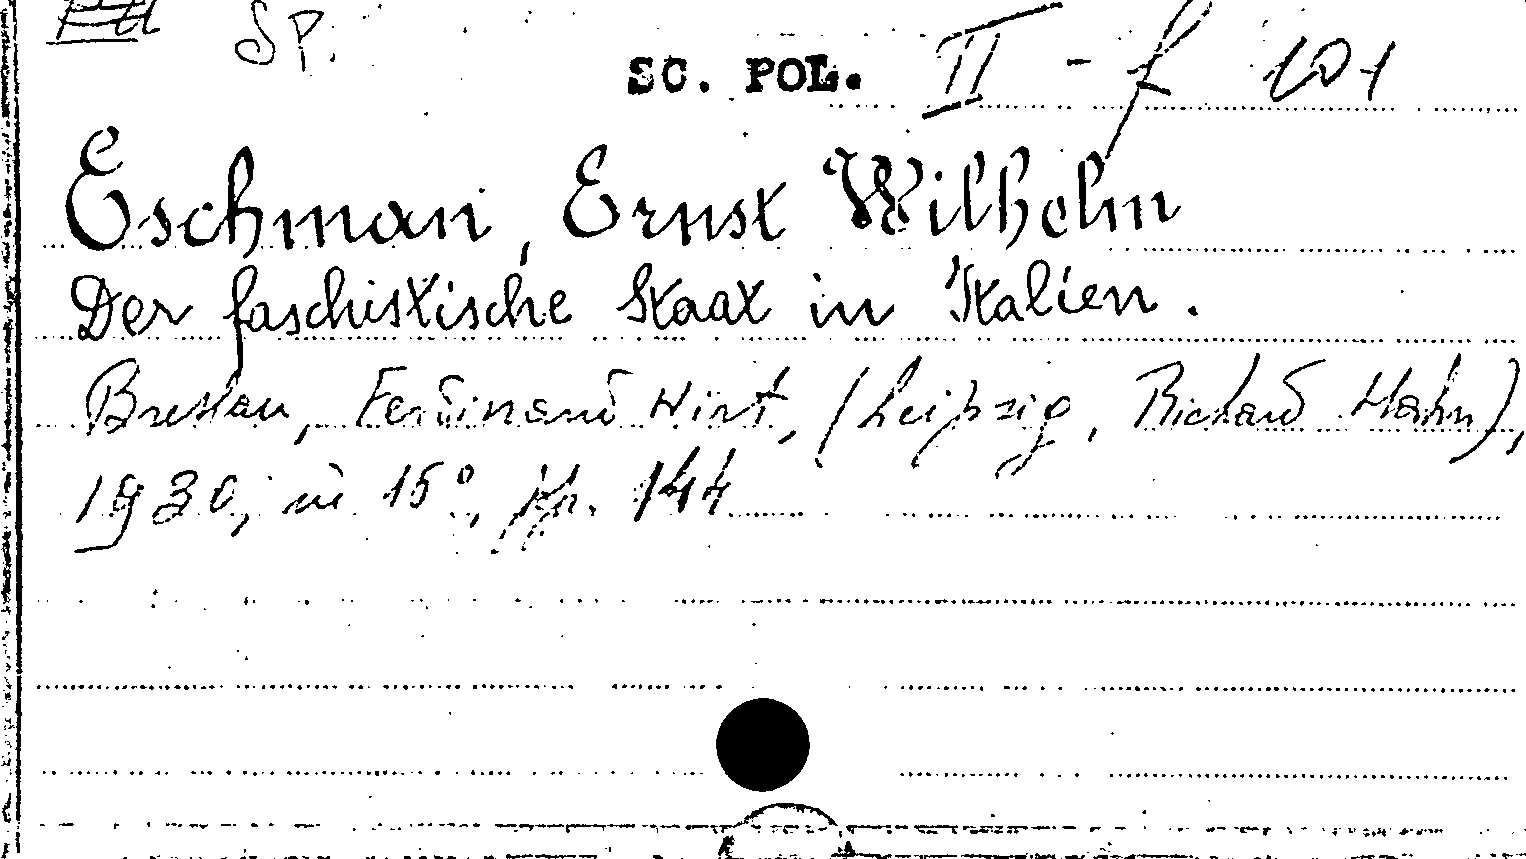 SP.
SC. POL. II - f 101
Eschman, Ernst Wilhelm
Der faschistische Staat in Italien.
Breslau, Ferdinand Hirt, (Leipzig, Richard Hahn),
1930, in 15°, pp. 144